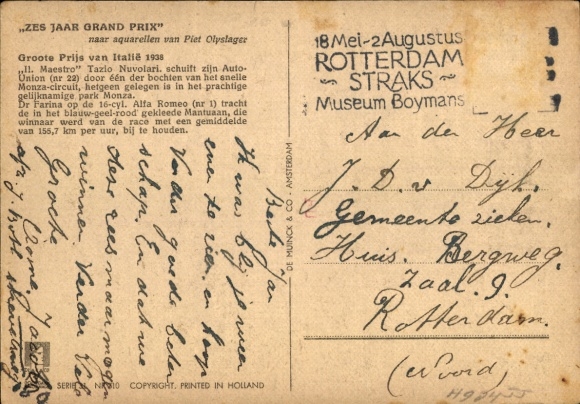 „ZES JAAR GRAND PRIX”
naar aquarellen van Piet Olyslager
Groote Prijs van Italië 1938
„Il. Maestro” Tazio Nuvolari. schuift zijn Auto-
Union (nr 22) door één der bochten van het snelle
Monza-circuit, hetgeen gelegen is in het prachtige
gelijknamige park Monza.
Dr Farina op de 16-cyl. Alfa Romeo (nr 1) tracht
de in het blauw-geel-rood gekleede Mantuaan, die
winnaar werd van de race met een gemiddelde
van 155,7 km per uur, bij te houden.
18 Mei-2 Augustus
ROTTERDAM
STRAKS
Museum Boymans
Aan den Heer
J. D. v Dijk.
Gemeente zieken.
Huis. Bergweg.
Zaal. 9.
Rotterdam.
(Noord)
DE MUINCK & CO - AMSTERDAM
Beste Jan
Ik was blij je weer
even te zien en hoop
Van der goede beter
schap. En dat we
deze race maar mogen
winnen. Verder Vele
Groete
SERIE 21. NR 210 COPYRIGHT. PRINTED IN HOLLAND